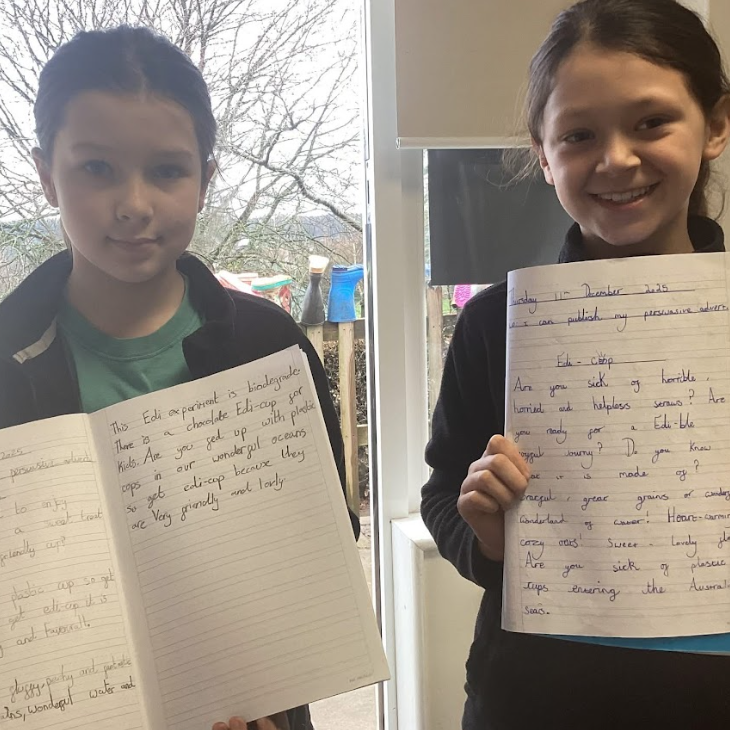 2025
persuasive advert
to enjoy
a sweet treat
friendly cup?
plastic cup so get
get edi-cup it is
and
and
wonderful water and
This Edi experiment is biodegrade.
There is a chocolate Edi-cup for
Kids. Are you fed up with plastic
cops in our wonderful oceans
so get edi-cup because they
are very friendly and lovly
Tuesday 11th December 2025
I can publish my persuasive advert
Edi - coop
Are you sick of horrible,
horried and helpless straws? Are
you ready for a Edi-ble
journy? Do you know
it is made of?
great grains of
wonderland of
cozy oats! Sweet - lovely
Are you sick of plastic
cups entering the Australi
seas.